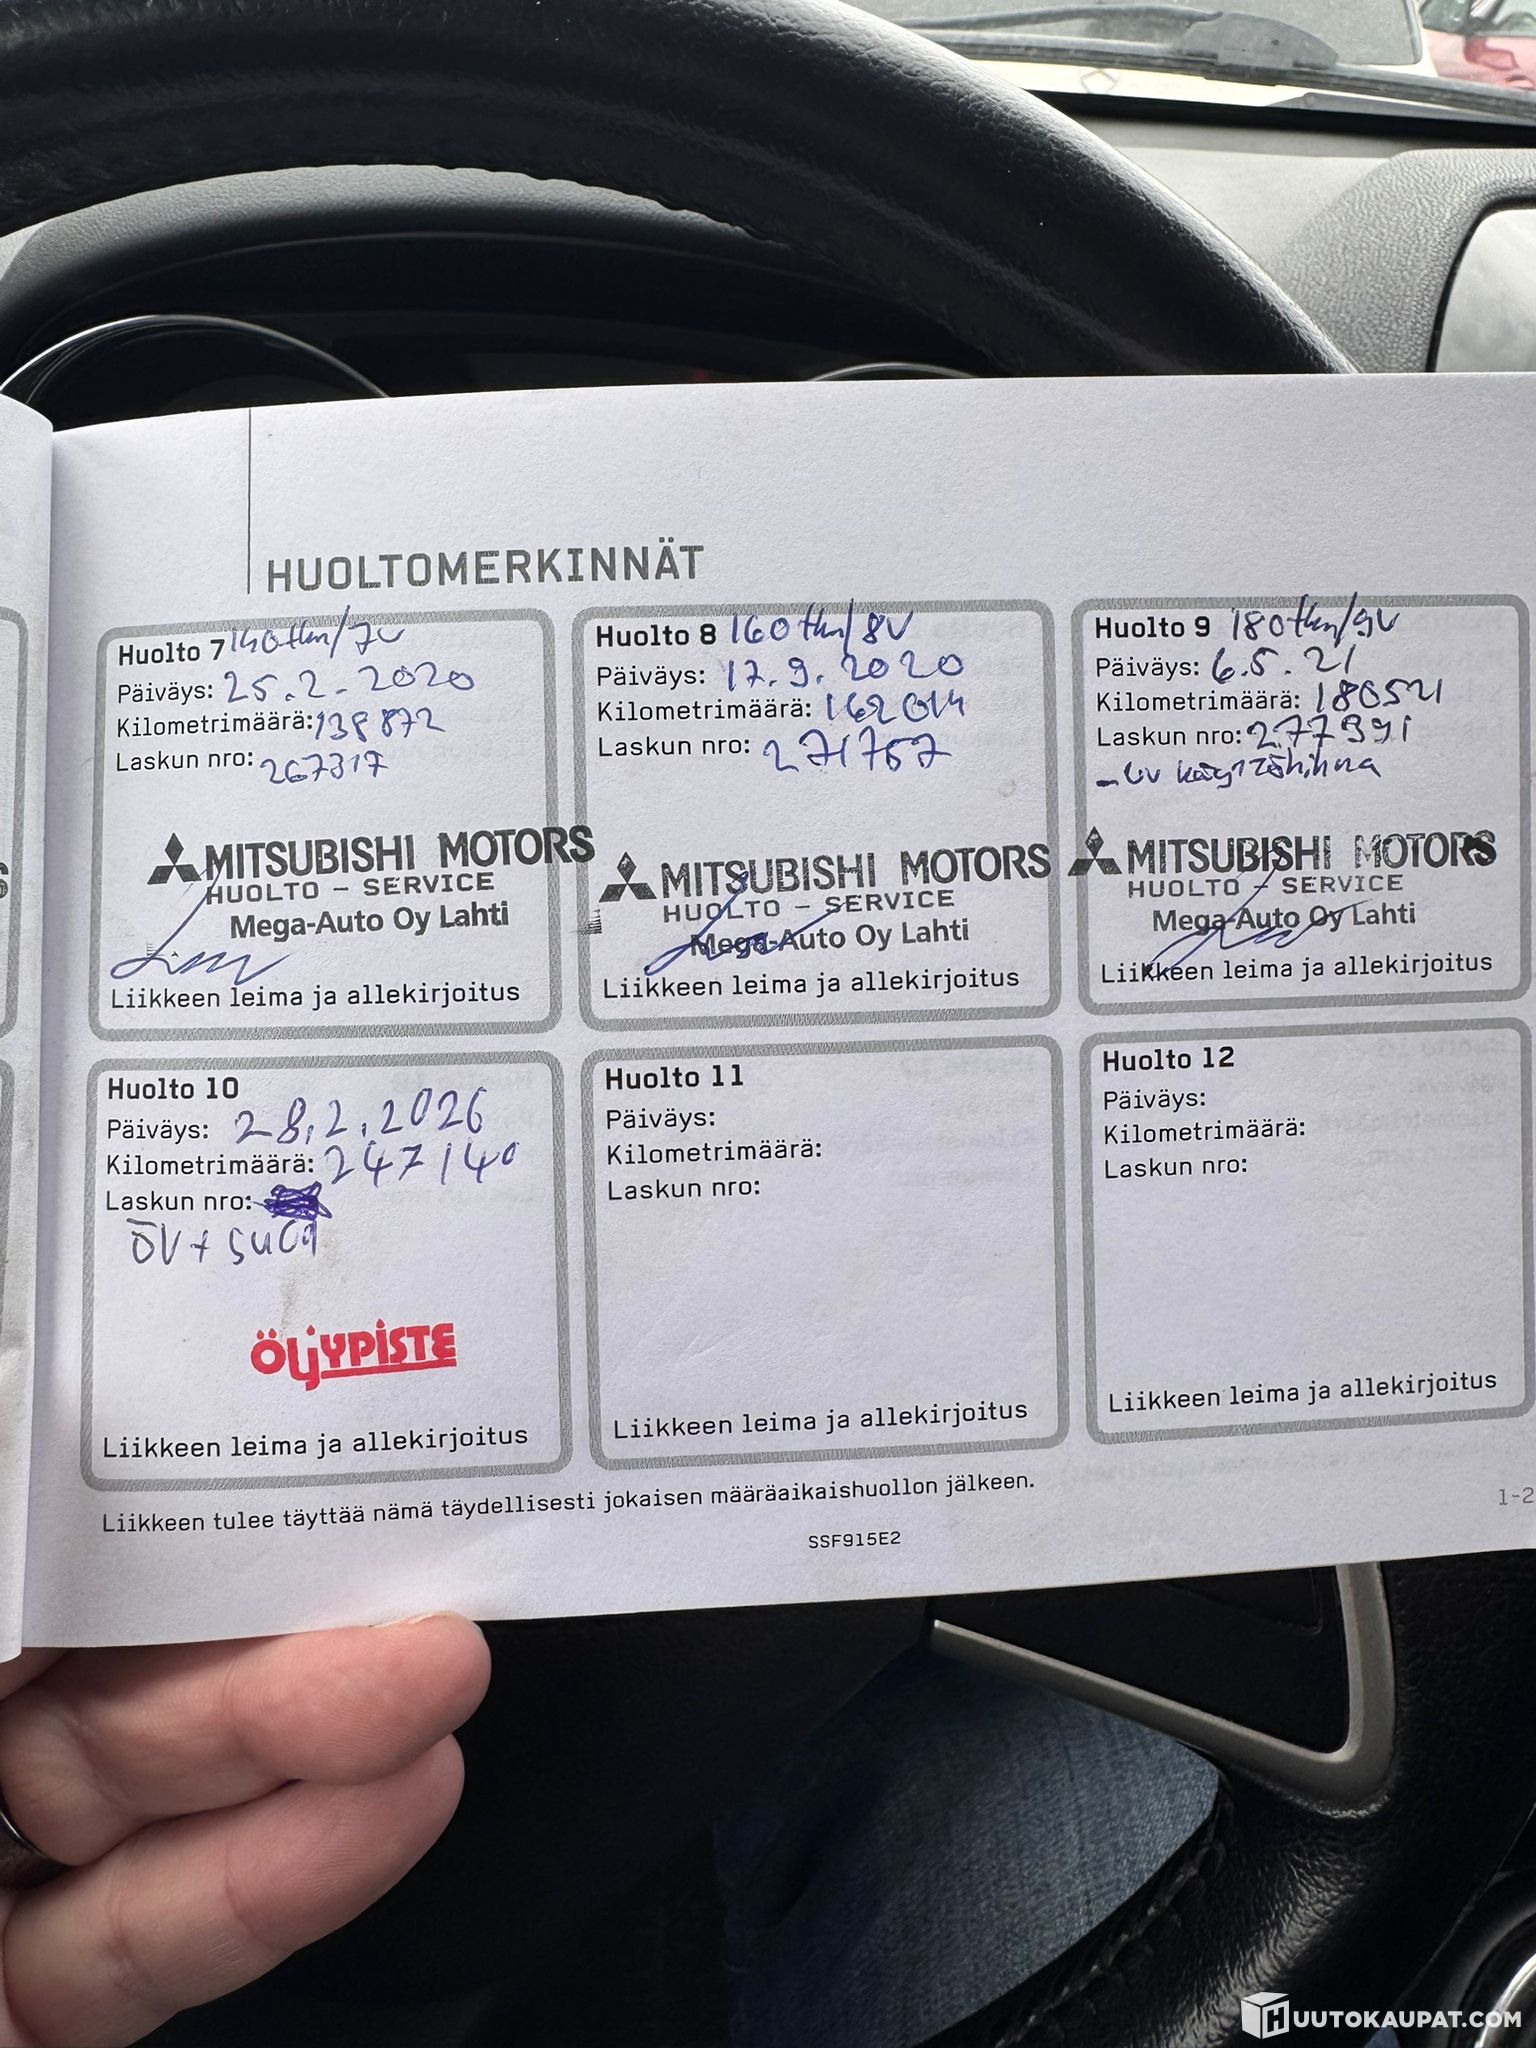 HUOLTOMERKINNÄT
Huolto 7 140tkm/7v
Päiväys: 25.2.2020
Kilometrimäärä: 138872
Laskun nro: 267317
MITSUBISHI MOTORS
HUOLTO - SERVICE
Mega-Auto Oy Lahti
Liikkeen leima ja allekirjoitus
Huolto 8 160tkm/8v
Päiväys: 17.9.2020
Kilometrimäärä: 162014
Laskun nro: 271757
MITSUBISHI MOTORS
HUOLTO - SERVICE
Mega-Auto Oy Lahti
Liikkeen leima ja allekirjoitus
Huolto 9 180tkm/9v
Päiväys: 6.5.21
Kilometrimäärä: 180521
Laskun nro: 277391
MITSUBISHI MOTORS
HUOLTO - SERVICE
Mega-Auto Oy Lahti
Liikkeen leima ja allekirjoitus
Huolto 10
Päiväys: 28.2.2026
Kilometrimäärä: 247140
Laskun nro:
ÖV+SUOD
ÖLJYPISTE
Liikkeen leima ja allekirjoitus
Huolto 11
Päiväys:
Kilometrimäärä:
Laskun nro:
Liikkeen leima ja allekirjoitus
Huolto 12
Päiväys:
Kilometrimäärä:
Laskun nro:
Liikkeen leima ja allekirjoitus
Liikkeen tulee täyttää nämä täydellisesti jokaisen määräaikaishuollon jälkeen.
SSF915E2
1-2
HUUTOKAUPAT.COM